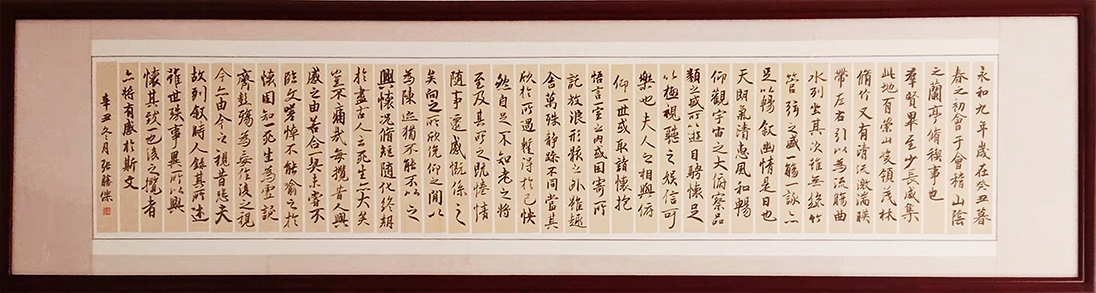 永和九年歲在癸丑暮
春之初會于會稽山陰
之蘭亭脩禊事也
羣賢畢至少長咸集
此地有崇山峻領茂林
脩竹又有清流激湍暎
帶左右引以為流觴曲
水列坐其次雖無絲竹
管弦之盛一觴一詠亦
足以暢敘幽情是日也
天朗氣清惠風和暢
仰觀宇宙之大俯察品
類之盛所以遊目騁懷足
以極視聽之娛信可
樂也夫人之相與俯
仰一世或取諸懷抱
悟言一室之內或因寄所
託放浪形骸之外雖趣
舍萬殊靜躁不同當其
欣於所遇暫得於己快
然自足不知老之將
至及其所之既惓情
隨事遷感慨係之
矣向之所欣俛仰之間以
為陳迹猶不能不以之
興懷況脩短隨化終期
於盡古人云死生亦大矣
豈不痛哉每攬昔人興
感之由若合一契未嘗不
臨文嗟悼不能喻之於
懷固知一死生為虛誕
齊彭殤為妄作後之視
今亦由今之視昔悲夫
故列敘時人錄其所述
雖世殊事異所以興
懷其致一也後之攬者
亦將有感於斯文
辛丑冬月張勝傑